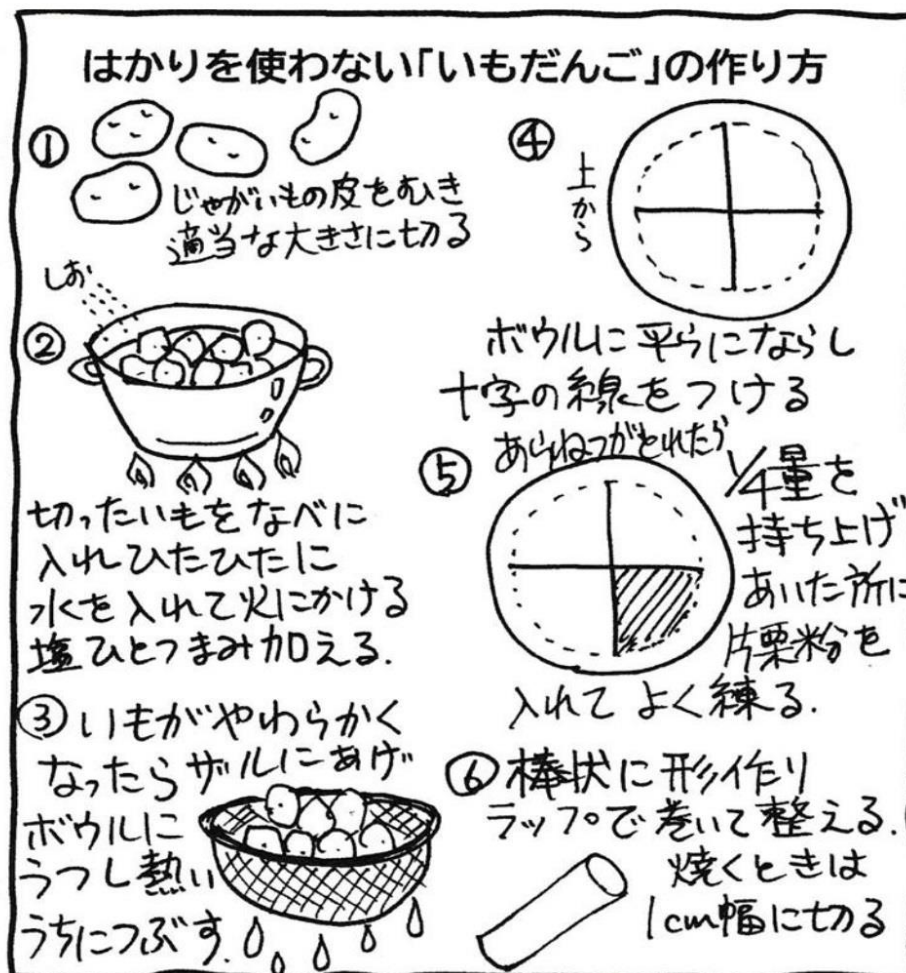 はかりを使わない「いもだんご」の作り方
①
じゃがいもの皮をむき
適当な大きさに切る
しお
②
切ったいもをなべに
入れひたひたに
水を入れて火にかける
塩ひとつまみ加える.
③いもがやわらかく
なったらザルにあげ
ボウルに
うつし熱い
うちにつぶす.
④
上から
ボウルに平らにならし
十字の線をつける
あらねつがとれたら
⑤
1/4量を
持ち上げ
あいた所に
片栗粉を
入れてよく練る.
⑥棒状に形作り
ラップで巻いて整える.
焼くときは
1cm幅に切る